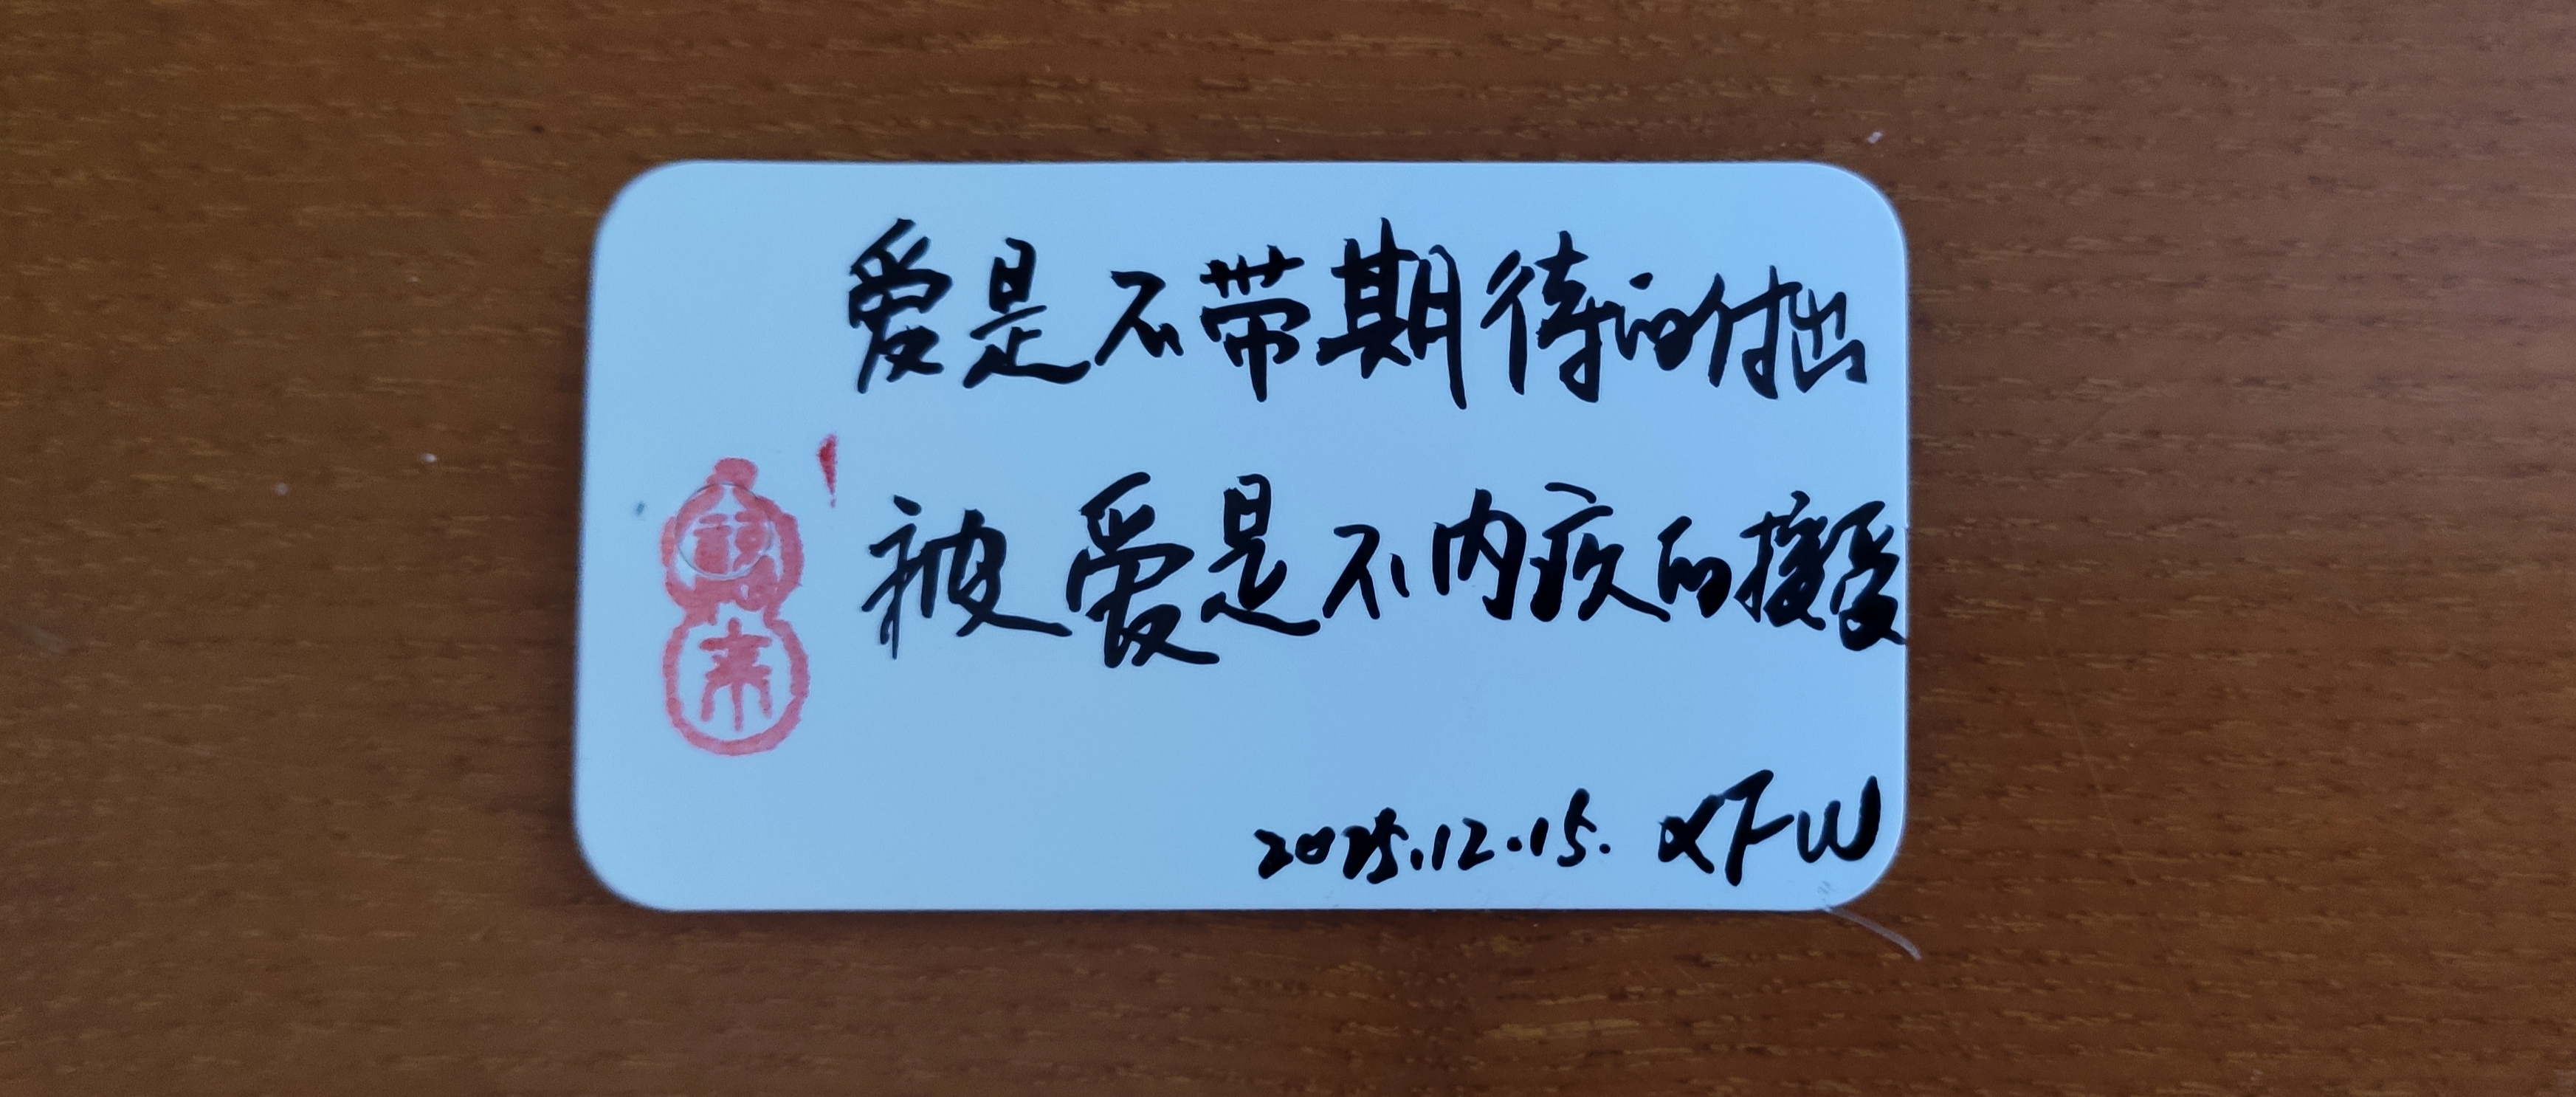 爱是不带期待的付出
被爱是不内疚的接受
来
2025.12.15. XFW